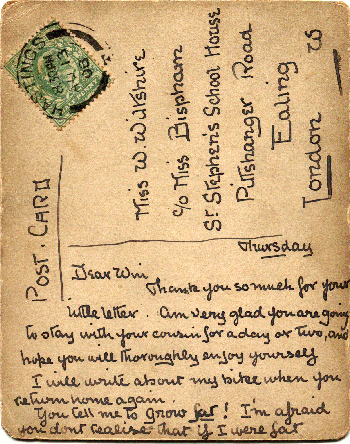 HASTINGS
POST • CARD
Miss W. Wilkshire
c/o Miss Blispham
St Stephen's School House
Pitshanger Road
Ealing
London W
Thursday
Dear Win
Thank you so much for your
little letter. Am very glad you are going
to stay with your cousin for a day or two, and
hope you will thoroughly enjoy yourself
I will write about my bike when you
return home again.
You tell me to grow fat! I'm afraid
you dont realise that if I were fat